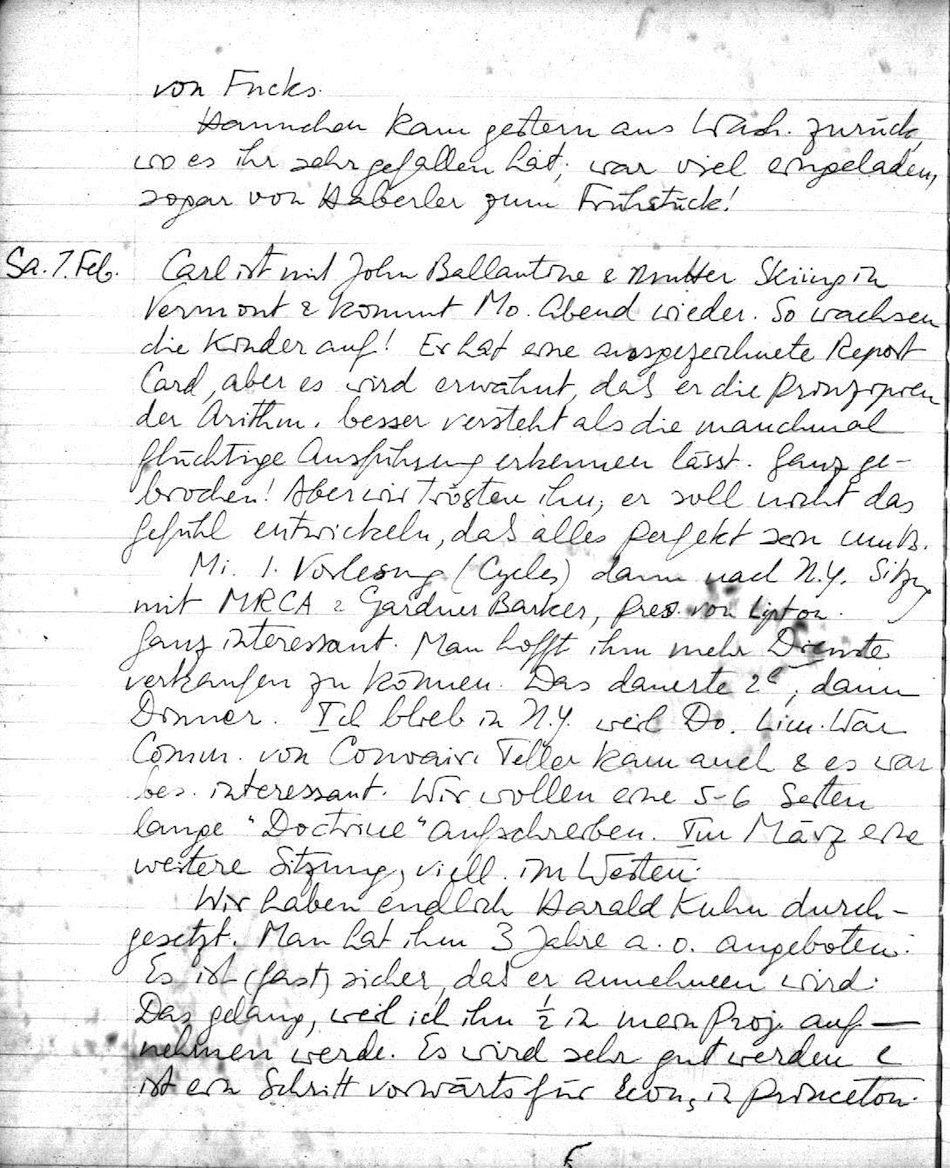 von Fucks.
Hannchen kam gestern aus Wash. zurück,
wo es ihr sehr gefallen hat; war viel eingeladen,
sogar von Haberler zum Frühstück!
Sa. 7. Feb. Carl ist mit John Ballantine & Mutter Skiing in
Vermont & kommt Mo. Abend wieder. So wachsen
die Kinder auf! Er hat eine ausgezeichnete Report
Card, aber es wird erwähnt, daß er die Prinzipien
der Arithm. besser versteht als die manchmal
flüchtige Ausführung erkennen lässt. Ganz ge-
brochen! Aber wir trösten ihn; er soll nicht das
Gefühl entwickeln, daß alles perfekt sein muß.
Mi. 1. Vorlesung (Cycles) dann nach N.Y. Sitzg
mit MRCA & Gardner Barker, Pres. von Lipton.
Ganz interessant. Man hofft ihm mehr Dienste
verkaufen zu können. Das dauerte 2h, dann
Dinner. Ich blieb in N.Y. weil Do. Lim. War
Comm. von Convair. Teller kam auch & es war
bes. interessant. Wir wollen eine 5-6 Seiten
lange "Doctrine" aufschreiben. Im März eine
weitere Sitzung, viell. im Westen.
Wir haben endlich Harald Kuhn durch-
gesetzt. Man hat ihm 3 Jahre a.o. angeboten.
Es ist (fast) sicher, daß er annehmen wird.
Das gelang, weil ich ihn ½ in mein Proj. auf-
nehmen werde. Es wird sehr gut werden &
ist ein Schritt vorwärts für Econ. in Princeton.